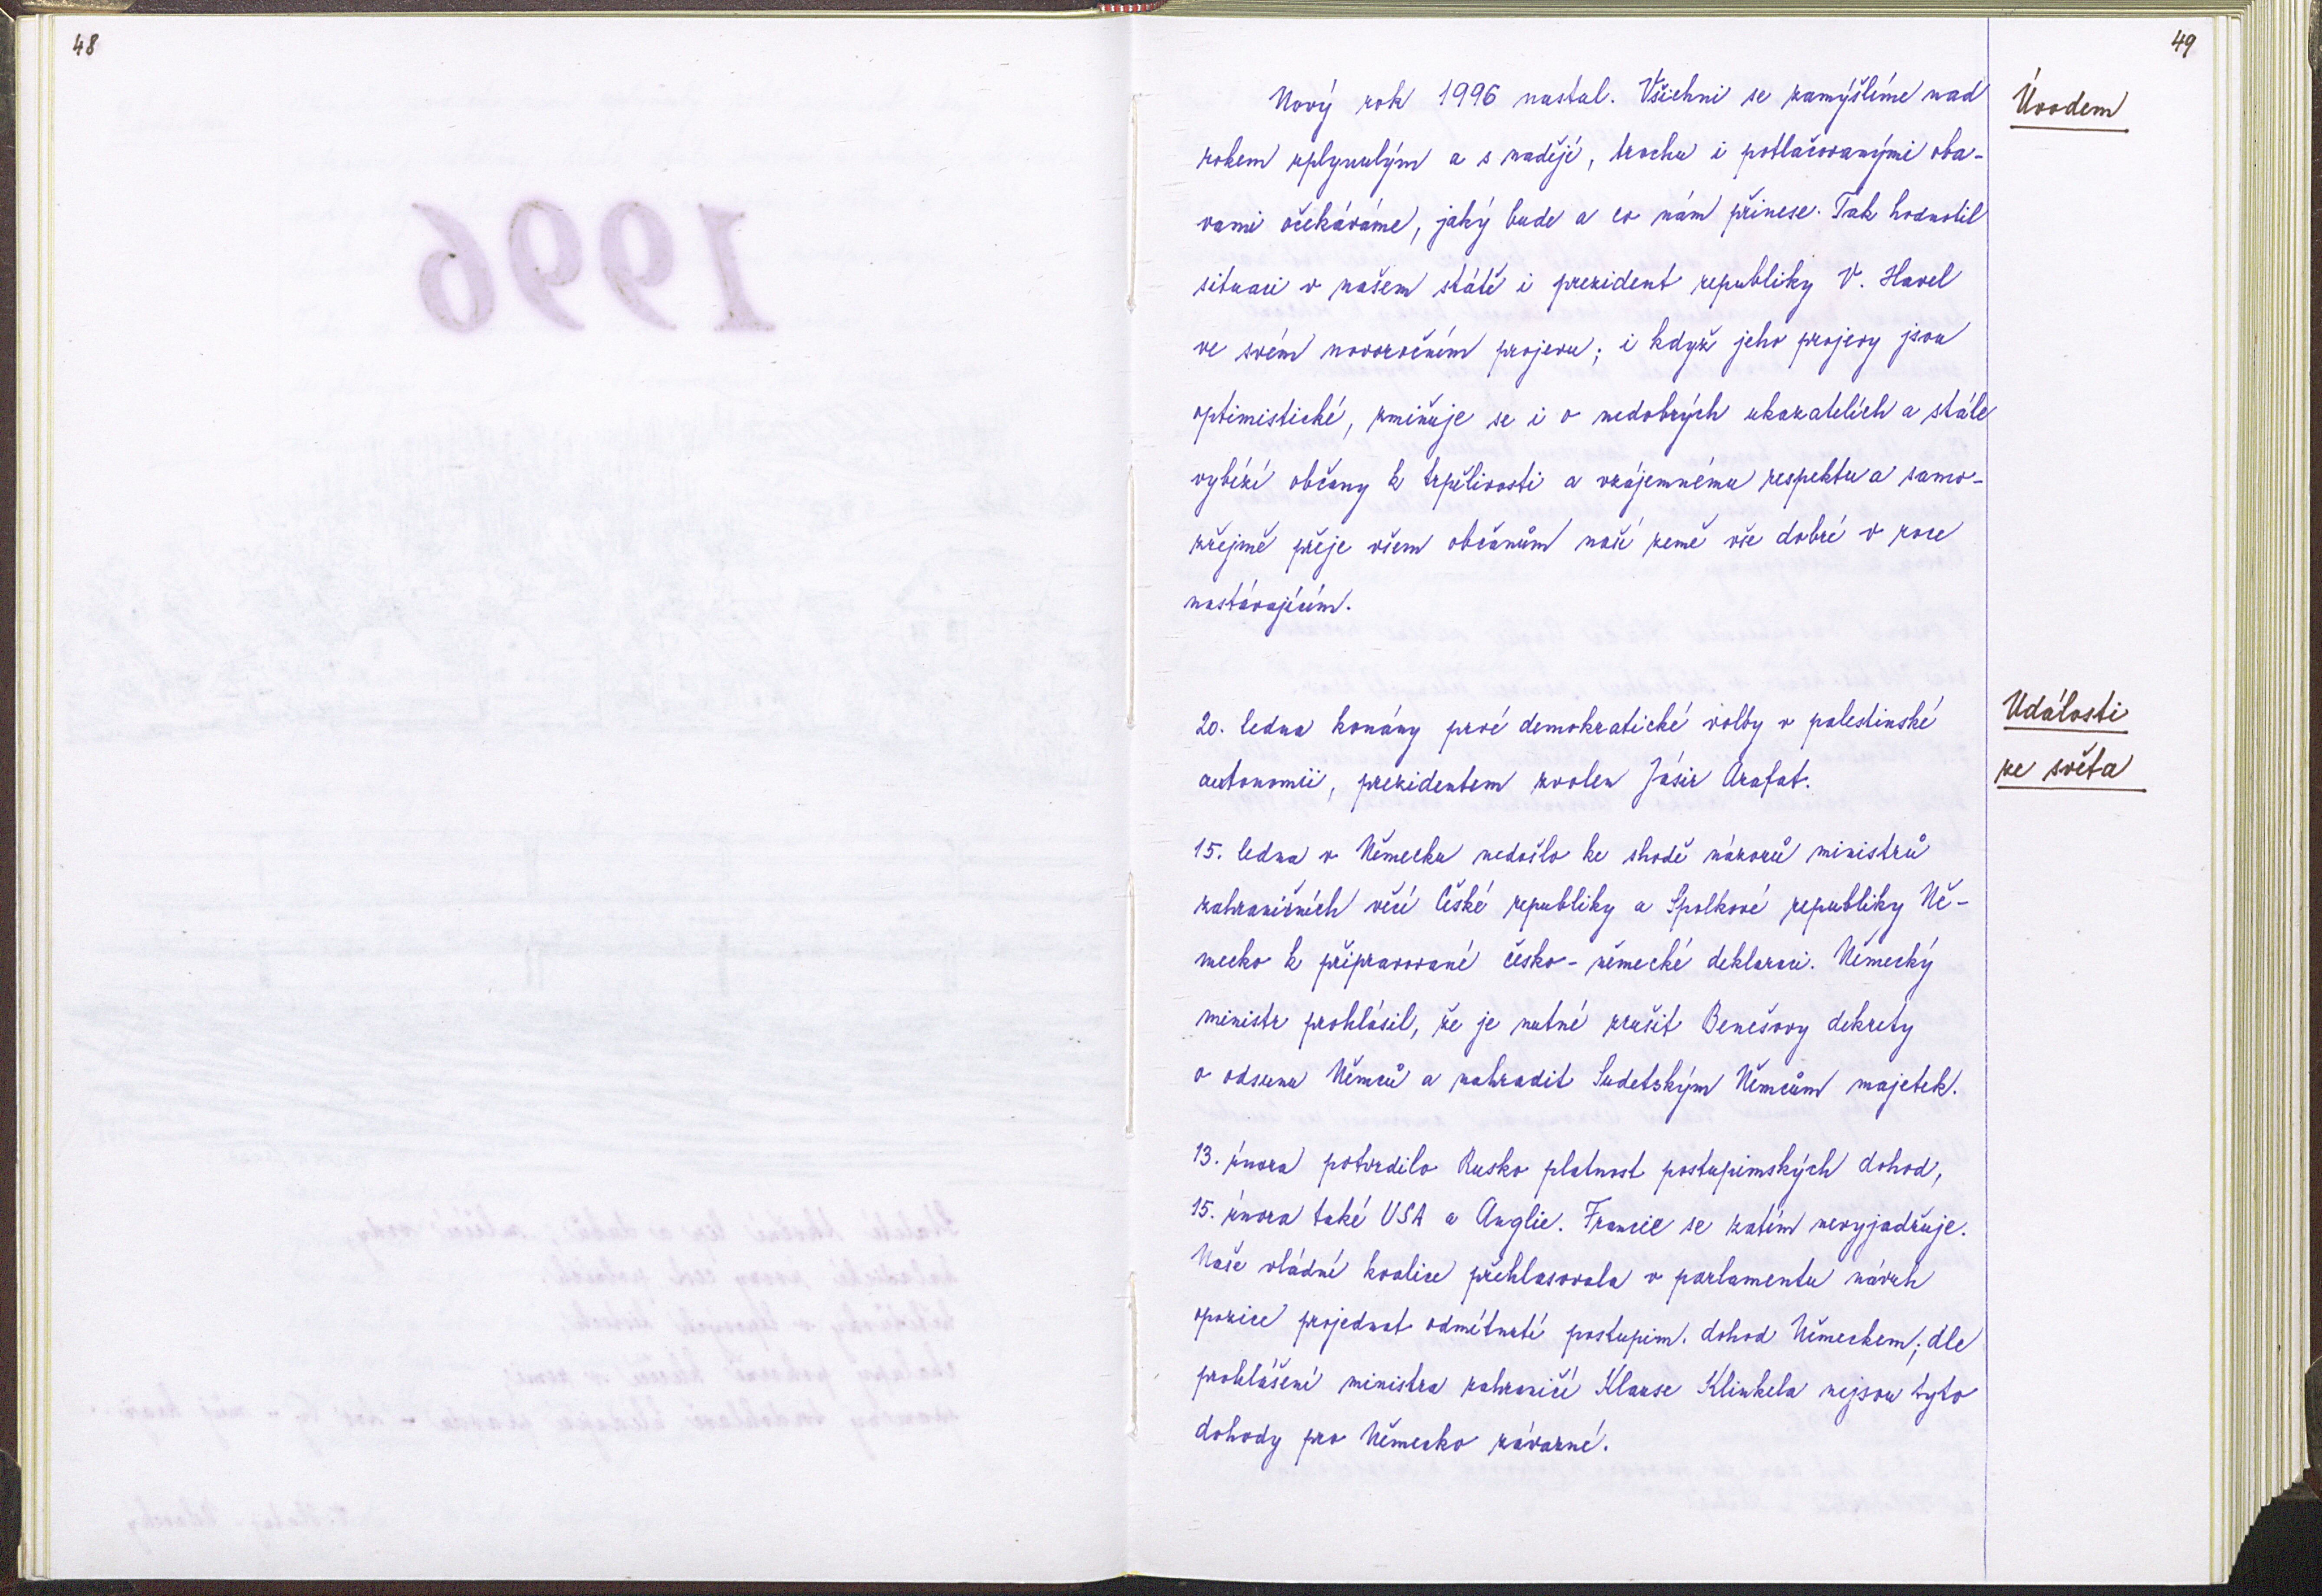 48
49
Úvodem
Nový rok 1996 nastal. Všichni se zamýšlíme nad
rokem uplynulým a s nadějí, trochu i potlačovanými oba-
vami očekáváme, jaký bude a co nám přinese. Tak hodnotil
situaci v našem státě i prezident republiky V. Havel
ve svém novoročním projevu; i když jeho projevy jsou
optimistické, zmiňuje se i o nedobrých ukazatelích a stále
vybízí občany k trpělivosti a vzájemnému respektu a samo-
zřejmě přeje všem občanům naší země vše dobré v roce
nastávajícím.
Události
ze světa
20. ledna konány prvé demokratické volby v palestinské
autonomii, prezidentem zvolen Jásir Arafat.
15. ledna v Německu nedošlo ke shodě názorů ministrů
zahraničních věcí České republiky a Spolkové republiky Ně-
mecko k připravované česko-německé deklaraci. Německý
ministr prohlásil, že je nutné zrušit Benešovy dekrety
o odsunu Němců a nahradit Sudetským Němcům majetek.
13. února potvrdilo Rusko platnost postupimských dohod,
15. února také USA a Anglie. Francie se zatím nevyjadřuje.
Naše vládní koalice přehlasovala v parlamentu návrh
opozice projednat odmítnutí postupim. dohod Německem; dle
prohlášení ministra zahraničí Klause Klinkela nejsou tyto
dohody pro Německo závazné.
1996